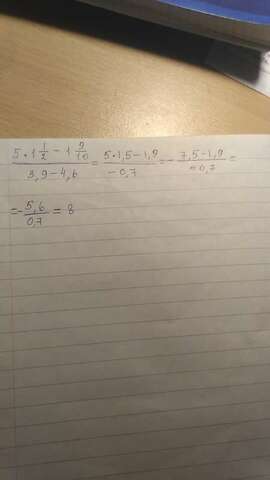 (5 · 1 1/2 − 1 9/10)/(3,9 − 4,6) = (5 · 1,5 − 1,9)/(−0,7) = − (7,5 − 1,9)/(−0,7) =
= − 5,6/0,7 = 8